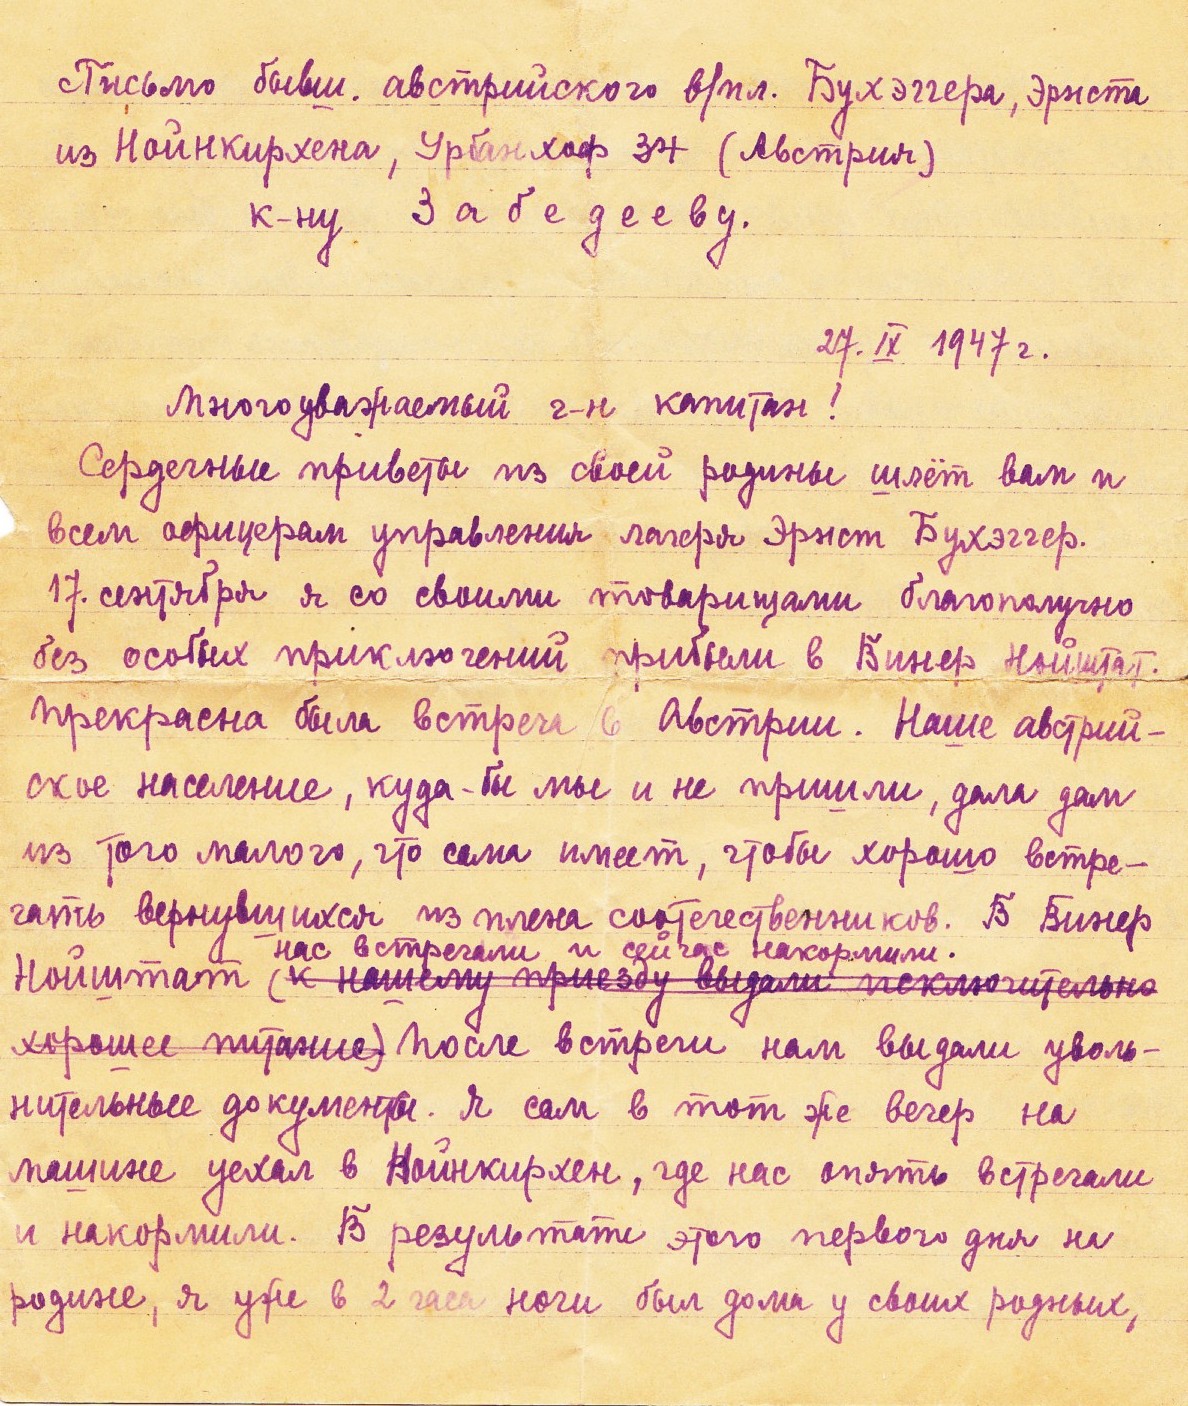 Письмо бывш. австрийского в/пл. Бухэггера, Эрнста
из Нойнкирхена, Урбанхоф 34 (Австрия)
к-ну Забедееву.
27. IX 1947 г.
Многоуважаемый г-н капитан!
Сердечные приветы из своей родины шлёт вам и
всем офицерам управления лагеря Эрнст Бухэггер.
17. сентября я со своими товарищами благополучно
без особых приключений прибыли в Винер Нойштат.
Прекрасна была встреча в Австрии. Наше австрий-
ское население, куда-бы мы и не пришли, дала дам
из того малого, что сама имеет, чтобы хорошо встре-
чать вернувшихся из плена соотечественников. В Винер
нас встречали и сейчас накормили.
Нойштат (к нашему приезду выдали исключительно
хорошее питание) После встречи нам выдали уволь-
нительные документы. Я сам в тот же вечер на
машине уехал в Нойнкирхен, где нас опять встречали
и накормили. В результате этого первого дня на
родине, я уже в 2 часа ночи был дома у своих родных,